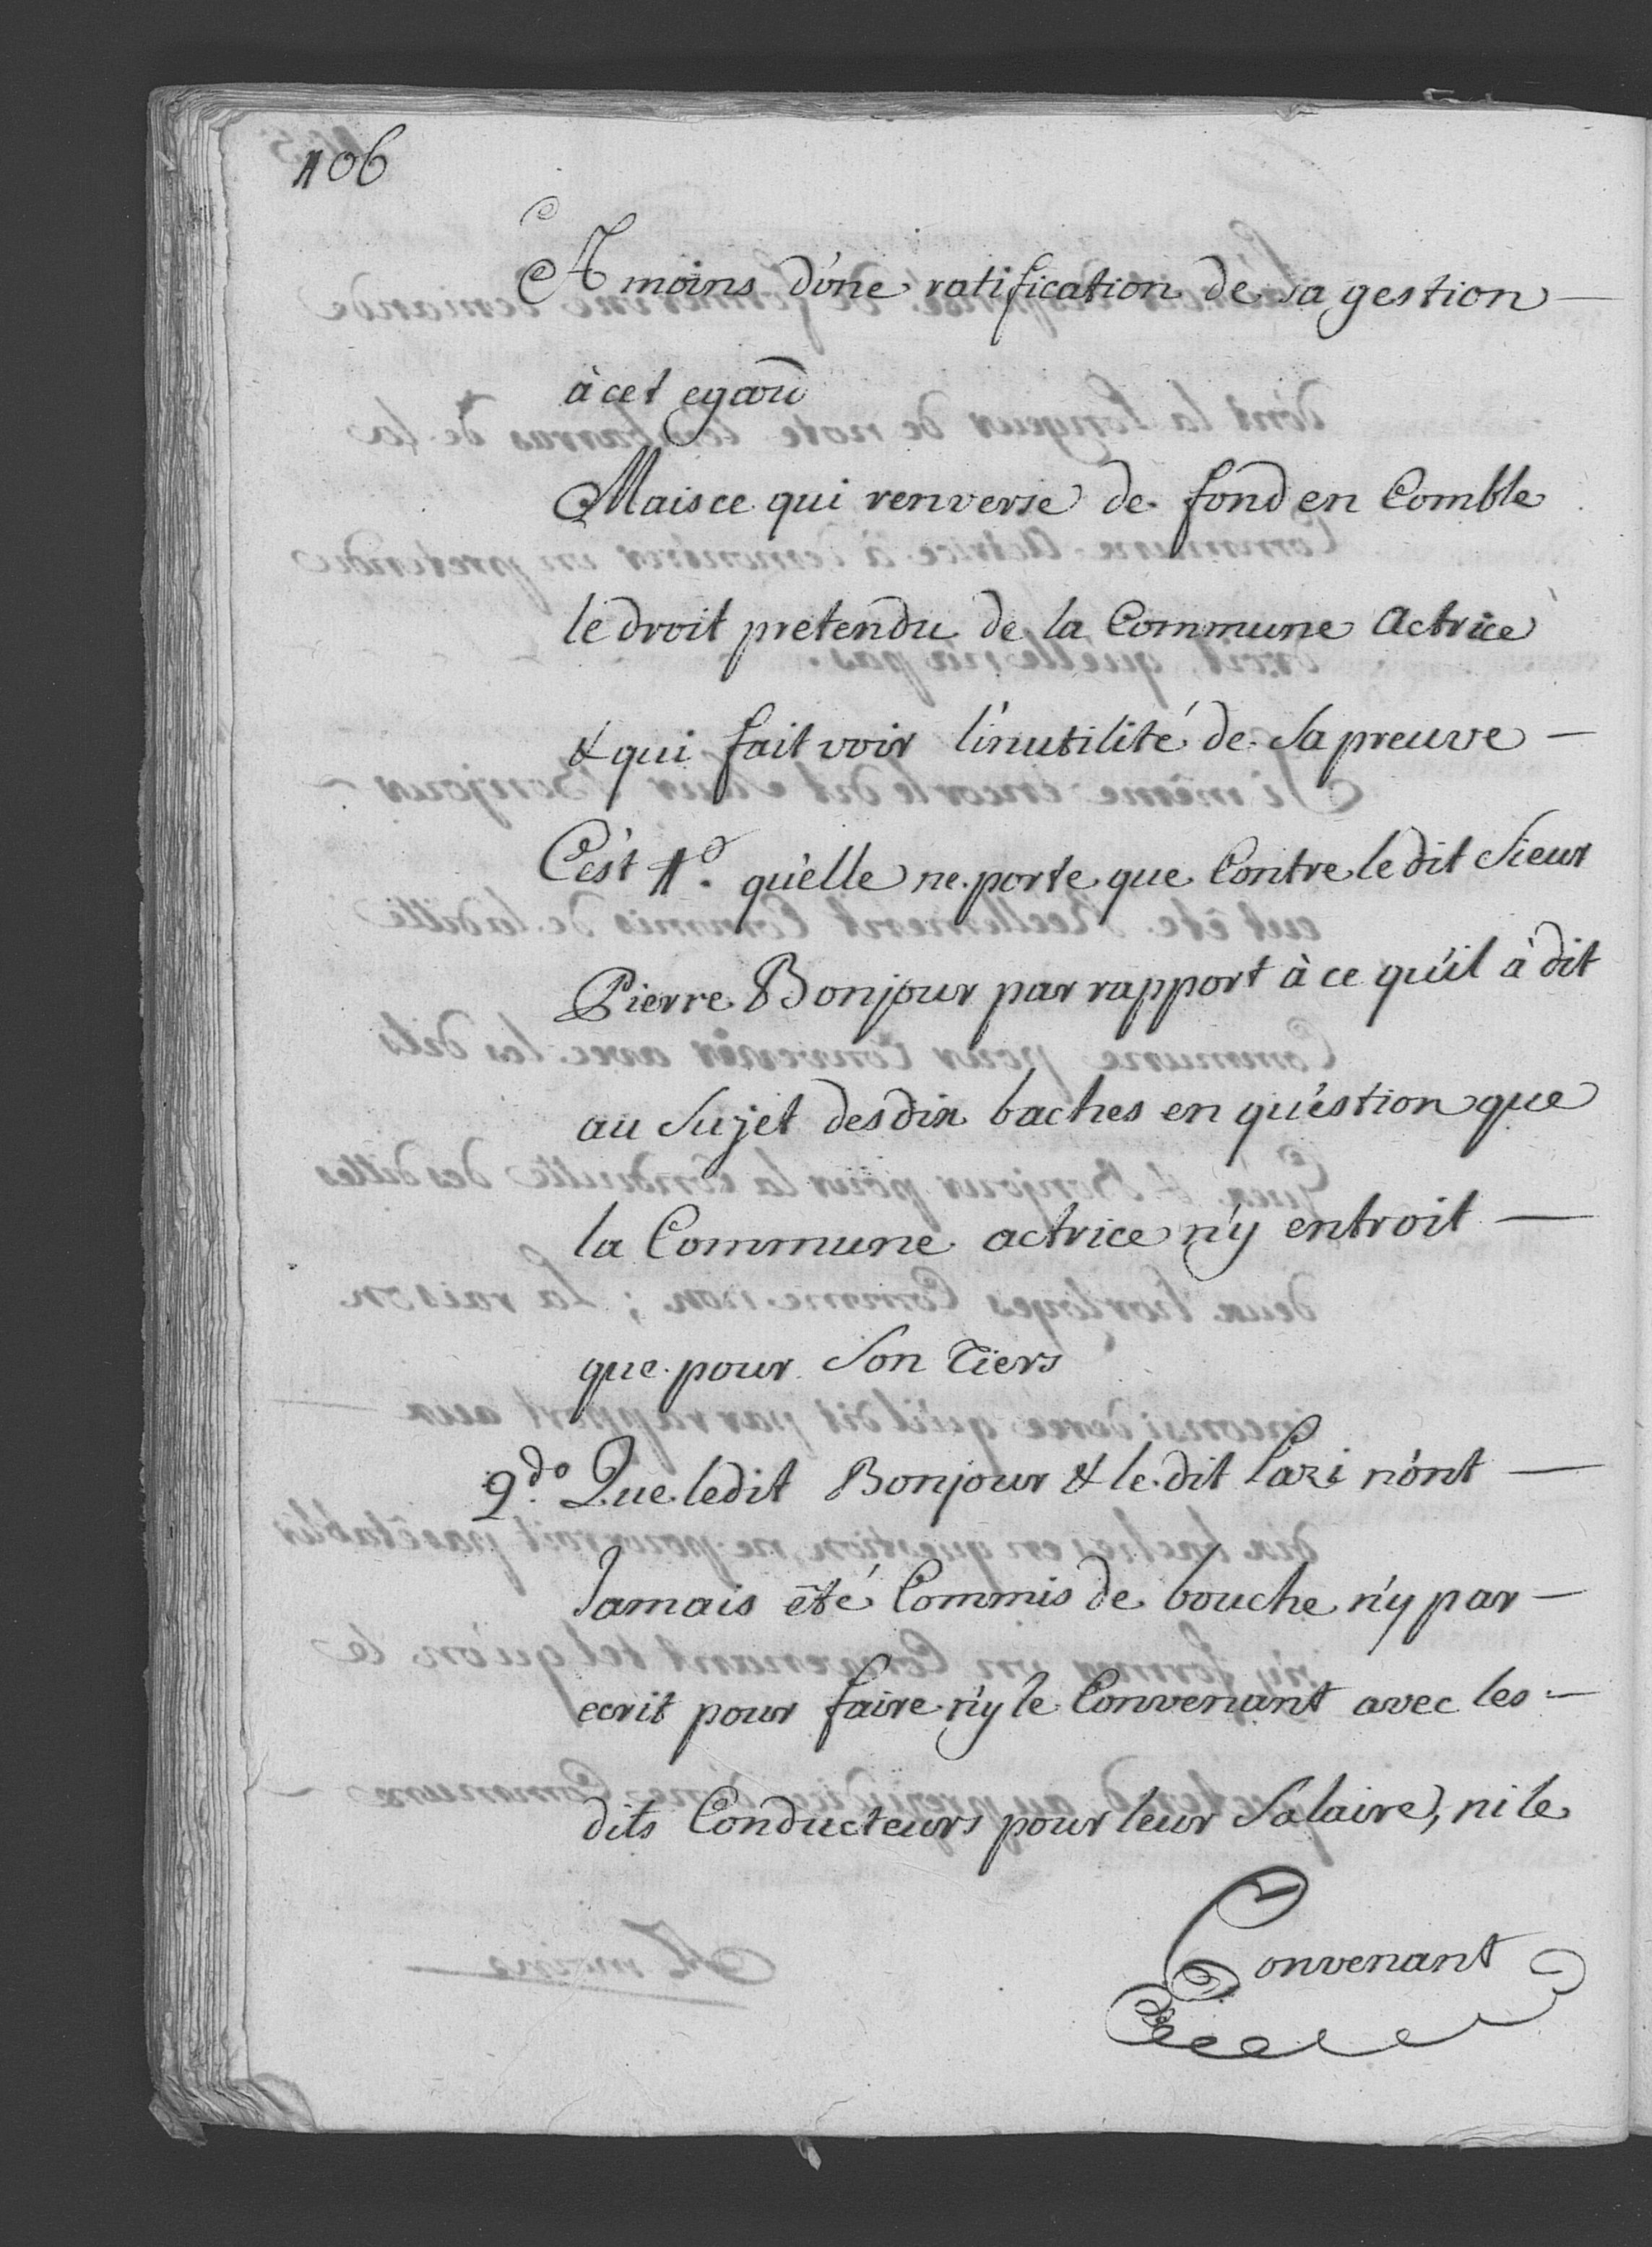 106
A moins d'une ratification de sa gestion —
à cet egard
Mais ce qui renverse de fond en Comble
le droit pretendu de la Commune Actrice
& qui fait voir l'inutilité de Sa preuve —
C'est 1º. qu'elle ne porte que Contre le dit Sieur
Pierre Bonjour par rapport à ce qu'il à dit
au Sujet des dix baches en qu'estion que
la Commune actrice n'y entroit —
que pour Son Tiers
2do. Que ledit Bonjour & le dit n'ont —
Jamais été Commis de bouche n'y par —
ecrit pour faire n'y le Convenant avec les —
dits Conducteurs pour leur Salaire, ni le
Convenant